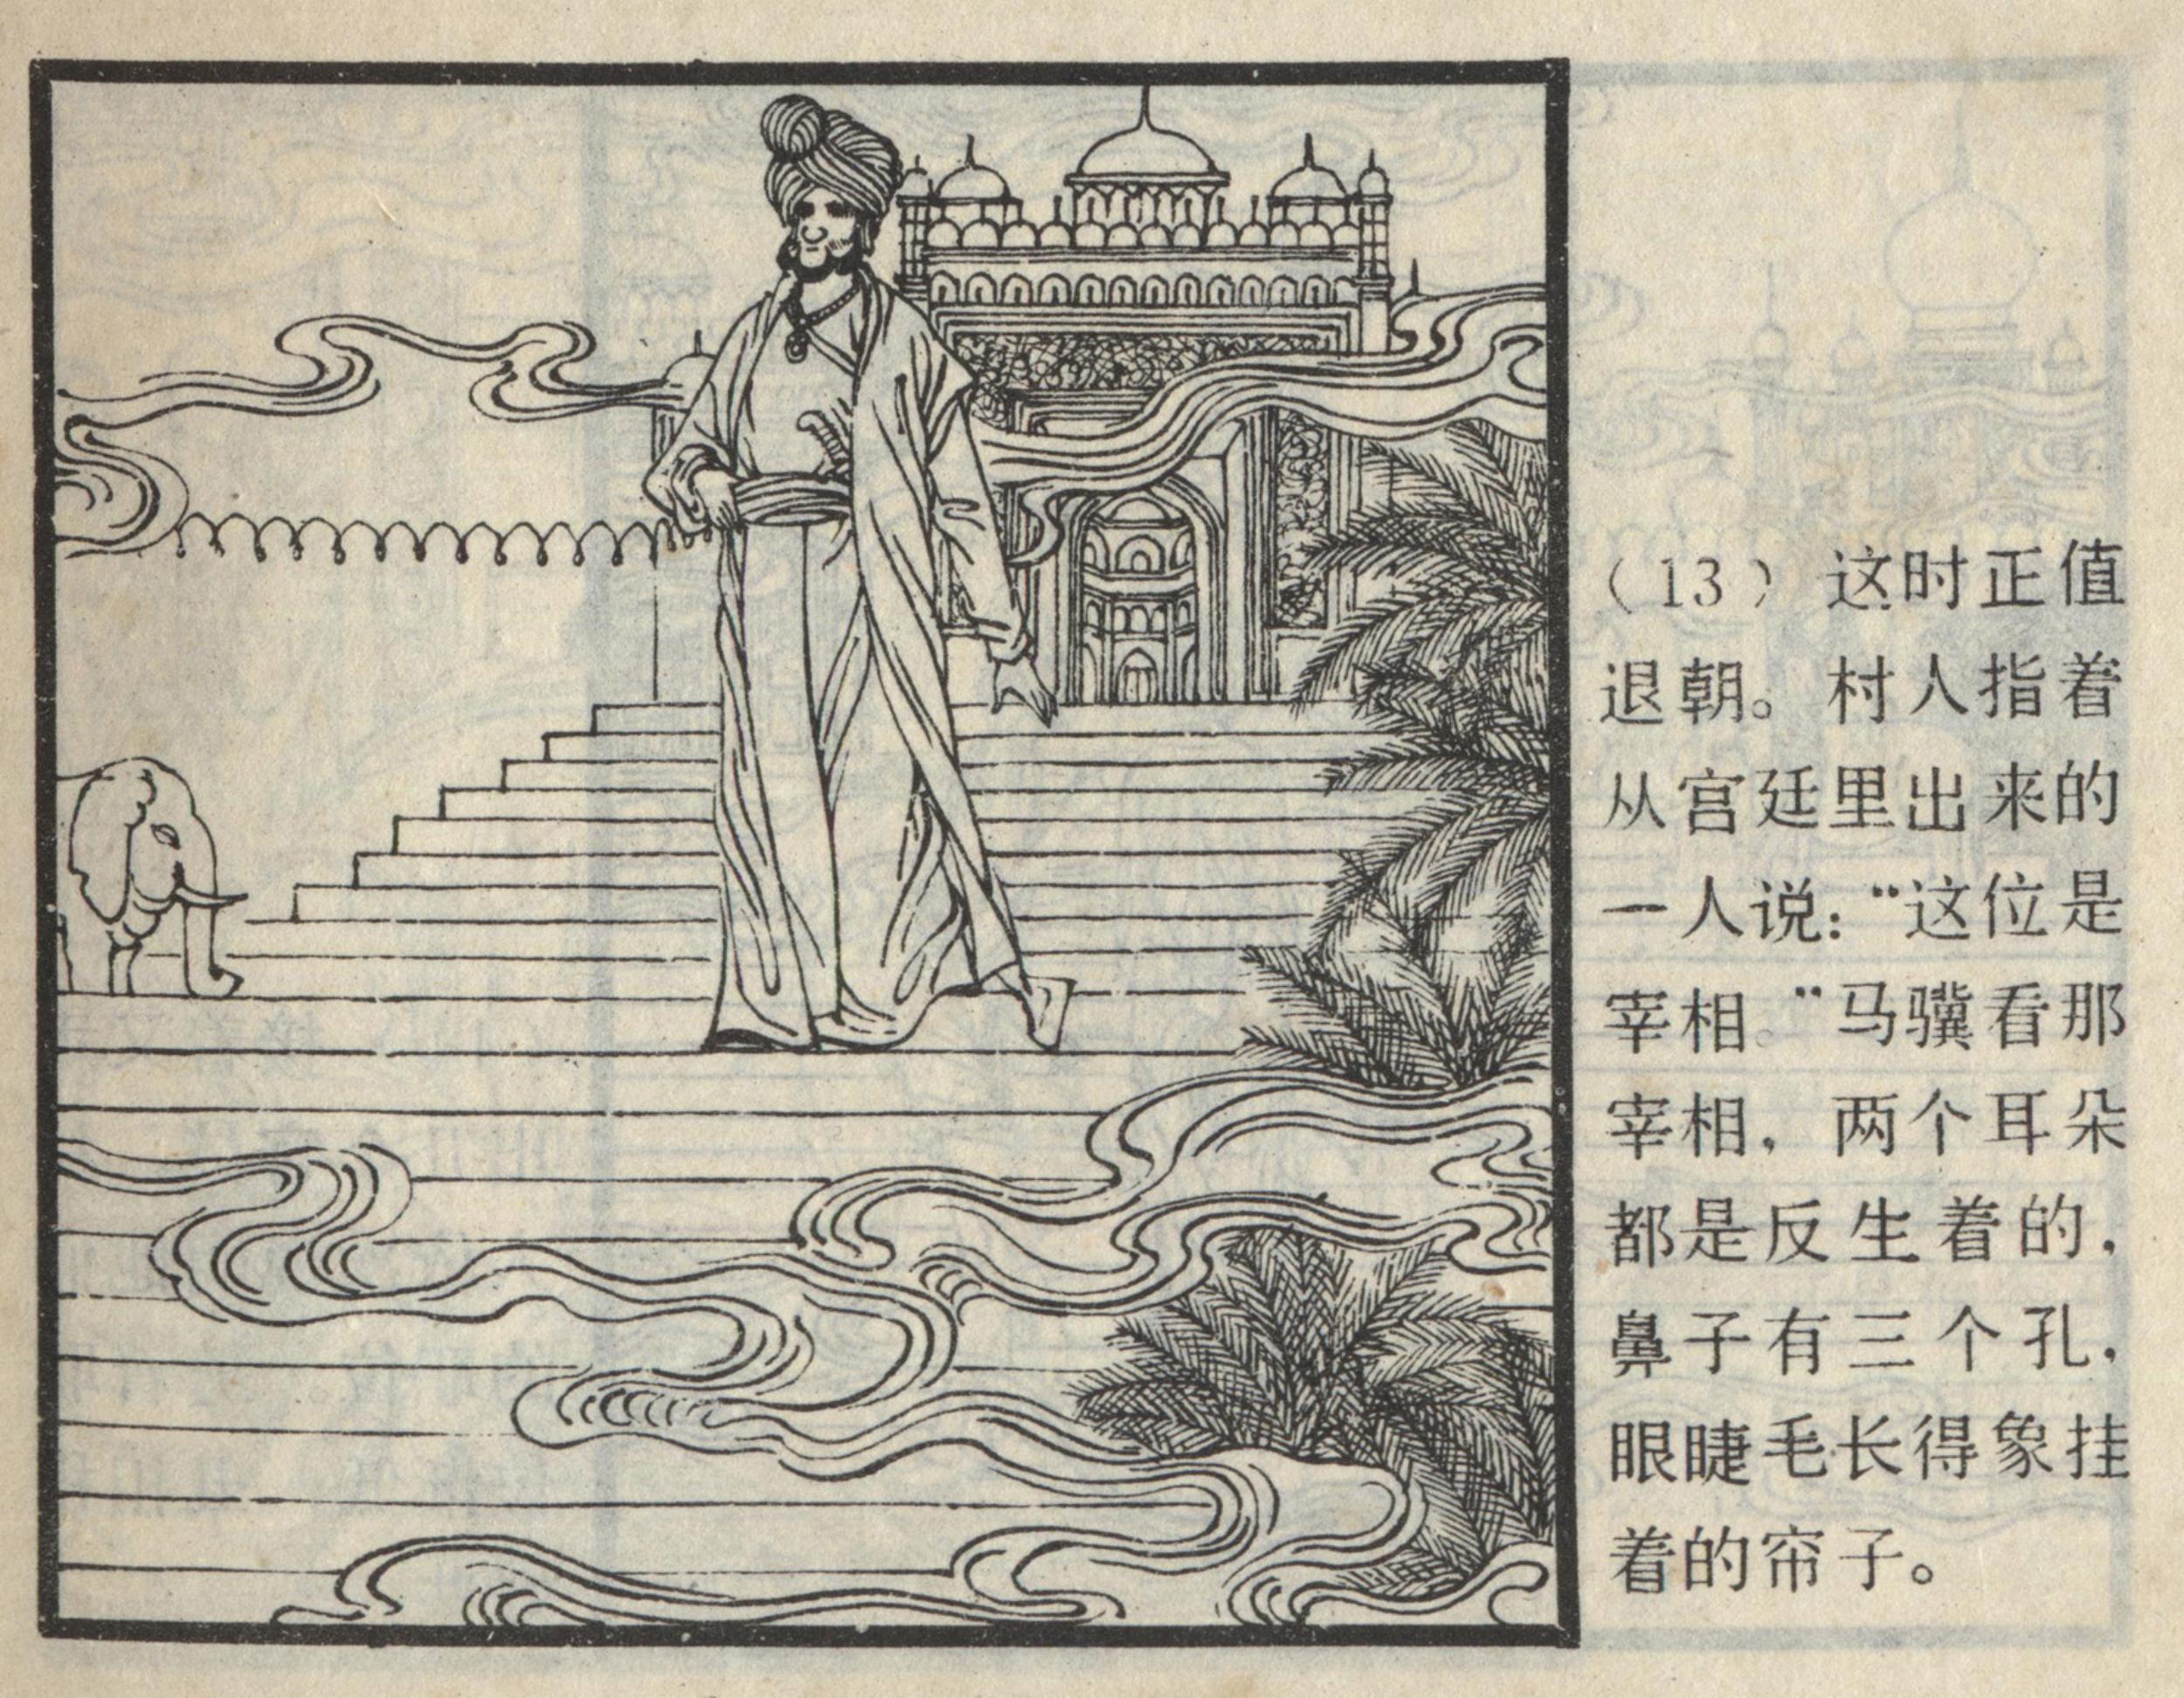 （13）这时正值
退朝。村人指着
从宫廷里出来的
一人说：“这位是
宰相。”马骥看那
宰相，两个耳朵
都是反生着的，
鼻子有三个孔，
眼睫毛长得象挂
着的帘子。